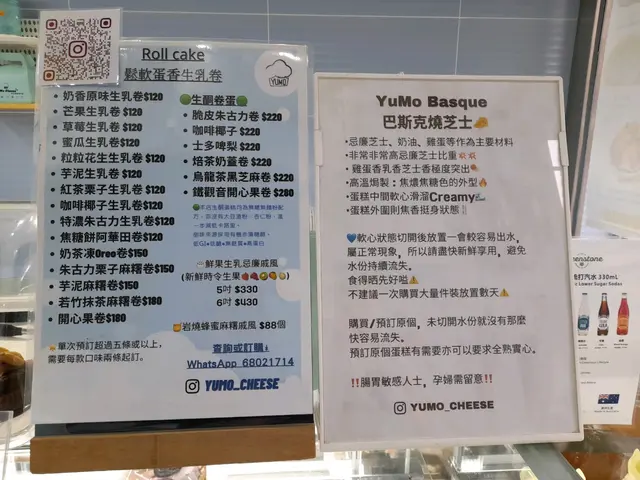 Roll cake
鬆軟蛋香生乳卷
YUMO
奶香原味生乳卷$120
芒果生乳卷$120
草莓生乳卷$120
蜜瓜生乳卷$120
粒粒花生生乳卷 $120
芋泥生乳卷$120
紅茶栗子生乳卷$120
咖啡椰子生乳卷 $120
特濃朱古力生乳卷 $120
焦糖餅阿華田卷$120
奶茶凍Oreo卷$150
朱古力栗子麻糬卷$150
芋泥麻糬卷$150
若竹抹茶麻糬卷$180
開心果卷$180
單次預訂超過五條或以上，
需要每款口味兩條起訂。
生酮卷蛋
脆皮朱古力卷 $220
咖啡椰子 $220
士多啤梨 $220
焙茶奶蓋卷 $220
烏龍茶黑芝麻卷 $220
鐵觀音開心果卷 $280
鮮果生乳忌廉戚風
(新鮮時令生果)
5吋 $330
6吋 $430
岩燒蜂蜜麻糬戚風 $88個
查詢或訂購
WhatsApp 68021714
YUMO_CHEESE
YuMo Basque
巴斯克燒芝士
忌廉芝士、奶油、雞蛋等作為主要材料
非常非常高忌廉芝士比重
雞蛋香乳香芝士香極度突出
高溫焗製：焦燶焦糖色的外型
蛋糕中間軟心滑溜Creamy
蛋糕外圍則焦香挺身狀態
軟心狀態切開後放置一會較容易出水，
屬正常現象，所以請盡快新鮮享用，避免
水份持續流失。
食得晒先好嗌
不建議一次購買大量件裝放置數天
購買/預訂原個，未切開水份就沒有那麼
快容易流失。
預訂原個蛋糕有需要亦可以要求全熟實心。
!!腸胃敏感人士，孕婦需留意!!
YUMO_CHEESE
汽水 330mL
Lower Sugar Sodas